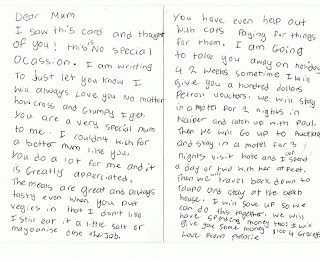 Dear Mum
I saw this card and thought
of you! this is No special
Ocassion. I am writing
To just let you know I
will always love you No matter
how cross and Grumpy I get.
You are a very special mum
to me. I couldn't wish for
a better mum like you.
You do a lot for me and it
is Greatly apperciated.
The meals are great and always
tasty even when you put
vegies in that I don't like
I still eat it a little salt or
mayonaise does the job.
You have even help out
with cars Paying for things
for them. I am Going
to take you away on holiday
4 2 weeks sometime I will
give you a hundred dollars
Petrol vouchers. we will stay
in a motel for 2 nights in
Napier and catch up with Paul.
Then we will Go up to Auckland
and stay in a motel for 5
nights visit Kate and I spend
a day or two with her at Feet.
Then we travel back down to
Taupo and stay at the bath
house. I will save up so we
can do this together. we will
have spending money too! I will
give you some money $100 4 Groceries
Love from